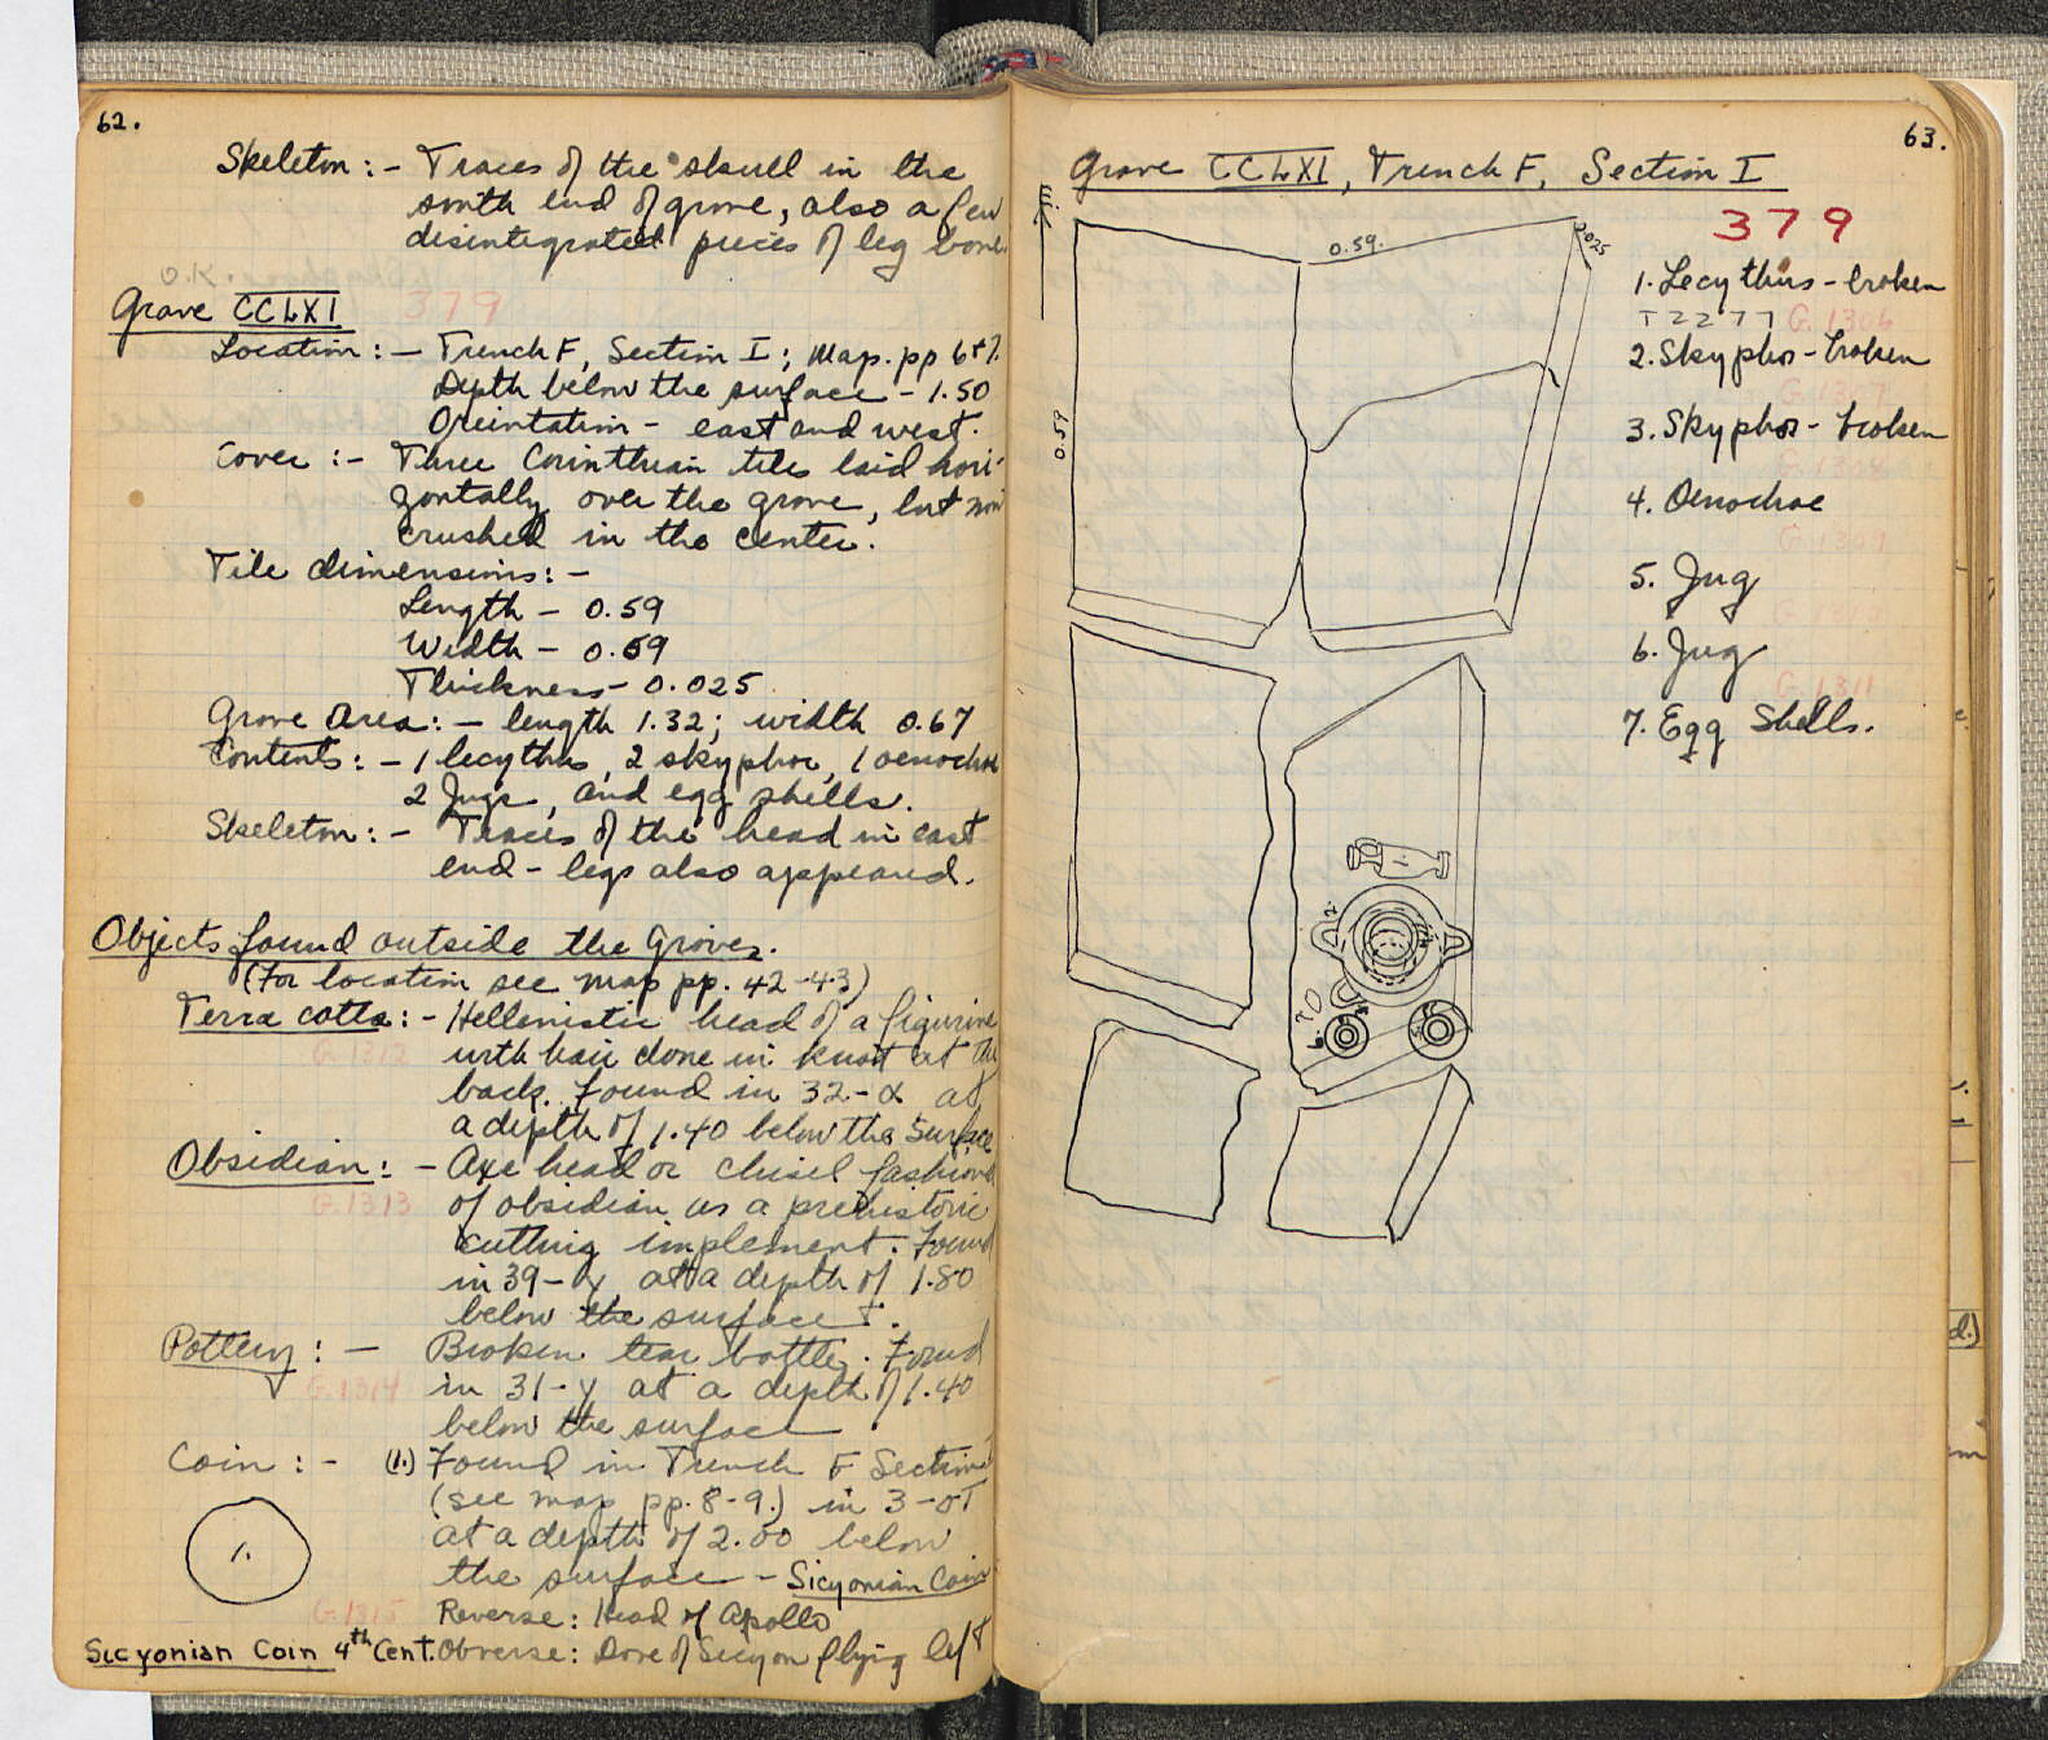 62.
Skeleton :- Traces of the skull in the
south end of grave, also a few
disintegrated pieces of leg bone.
O.K.
Grave CCLXI 379
Location :- Trench F, Section I; Map. pp 6+7.
Depth below the surface - 1.50
Orientation - east and west.
Cover :- Three Corinthian tiles laid hori-
zontally over the grave, but now
crushed in the center.
Tile dimensions: -
Length - 0.59
Width - 0.59
Thickness - 0.025
Grave Area: - length 1.32; width 0.67
Contents: - 1 lecythus, 2 skyphoi, 1 oenochoe
2 Jugs, and egg shells.
Skeleton: - Traces of the head in east
end - legs also appeared.
Objects found outside the Graves.
(For location see map pp. 42-43)
Terra cotta: - Hellenistic head of a figurine
G. 1312 with hair done in knot at the
back. Found in 32-α at
a depth of 1.40 below the surface
Obsidian: - Axe head or chisel fashioned
G. 1313 of obsidian as a prehistoric
cutting implement. Found
in 39-γ at a depth of 1.80
below the surface.
Pottery: - Broken tear bottle. Found
G. 1314 in 31-γ at a depth of 1.40
below the surface
Coin: - (1.) Found in Trench F Section I
(see map pp. 8-9.) in 3-στ
1. at a depth of 2.00 below
the surface - Sicyonian Coin
G. 1315 Reverse: Head of Apollo
Sicyonian Coin 4th Cent. Obverse: Dove of Sicyon flying left
63.
Grave CCLXI, Trench F, Section I
379
E.
0.59.
0.025
0.59
1. Lecythus - broken
T2277 G. 1306
2. Skyphos - broken
G. 1307
3. Skyphos - broken
G. 1308
4. Oenochoe
G. 1309
5. Jug
6. Jug
G. 1311
7. Egg Shells.
2.
7
6.
5.